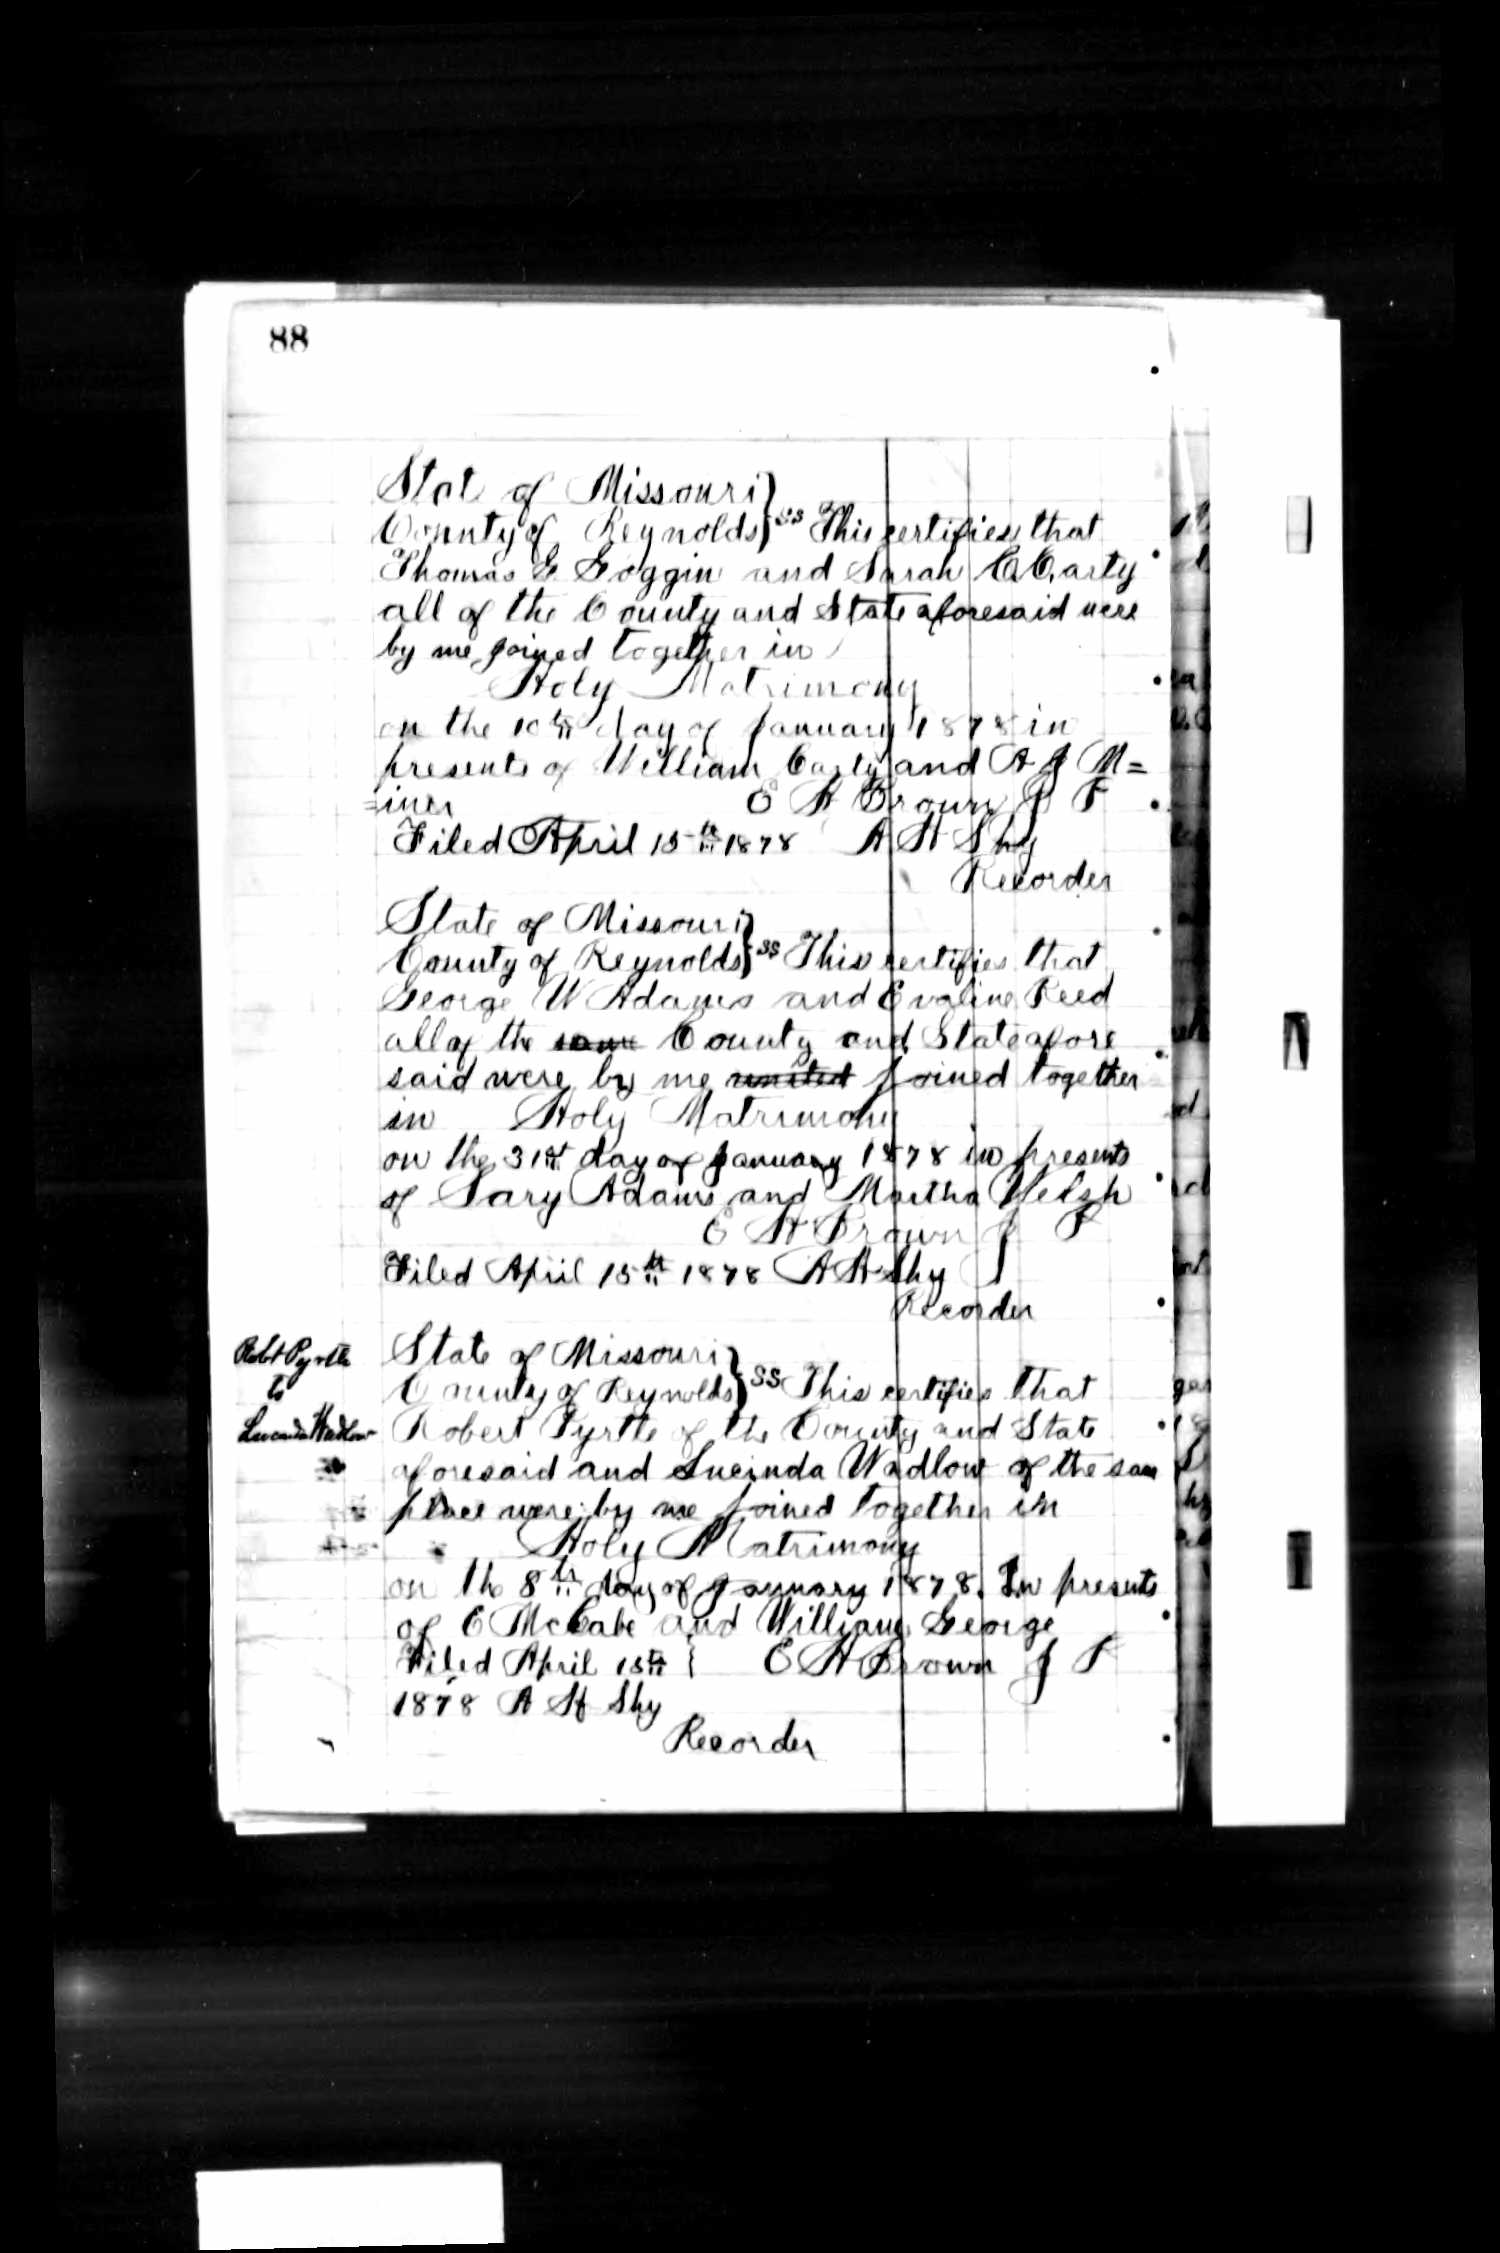 88
State of Missouri }
County of Reynolds } ss This certifies that
Thomas G Goggin and Sarah C Carty
all of the County and State aforesaid were
by me joined together in
Holy Matrimony
on the 10th day of January 1878 in
presents of William Carty and A J M=
=iner E H Brown J P
Filed April 15th 1878 A H Shy
Recorder
State of Missouri }
County of Reynolds } ss This certifies that
George W Adams and Evaline Reed
all of the same County and State afore
said were by me united joined together
in Holy Matrimony
on the 31st day of January 1878 in presents
of Sary Adams and Martha Welsh
E H Brown J P
Filed April 15th 1878 A H Shy
Recorder
Robt Pyrtle
to
Lucinda Wadlow
State of Missouri }
County of Reynolds } SS This certifies that
Robert Pyrtle of the County and State
aforesaid and Lucinda Wadlow of the sam
place were by me joined together in
Holy Matrimony
on the 8th day of January 1878. In presents
of E McCabe and William George
Filed April 15th { E H Brown J P
1878 A H Shy
Recorder